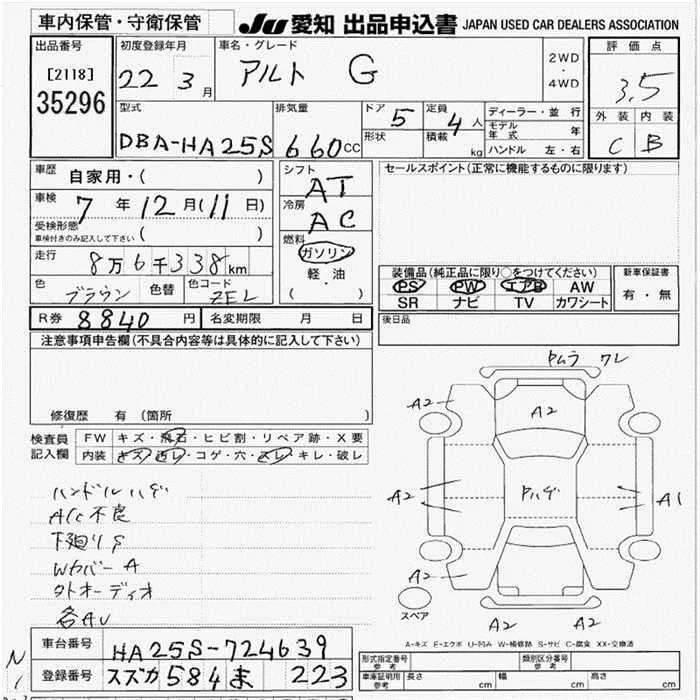 車内保管・守衛保管
JU 愛知 出品申込書 JAPAN USED CAR DEALERS ASSOCIATION
出品番号
[2118]
35296
初度登録年月
22 3 月
車名・グレード
アルト G
2WD
・
4WD
評価点
3.5
外装 内装
C B
型式
DBA-HA25S
排気量
660cc
ドア 5
形状
定員 4 人
積載 kg
ディーラー・並行
モデル年式 年
ハンドル 左・右
車歴
自家用・( )
車検
7 年 12 月 (11 日)
受検形態
車検付きのみ記入して下さい ( )
走行
8万6千338km
色 ブラウン 色替 色コード ZEL
シフト
AT
冷房
AC
燃料
ガソリン
軽・油
( )
セールスポイント(正常に機能するものに限ります)
装備品(純正品に限り○をつけてください)
PS PW エアB AW
SR ナビ TV カワシート
新車保証書
有・無
R券 8840 円 名変期限 月 日
後日品
注意事項申告欄(不具合内容等は具体的に記入して下さい)
修復歴 有 (箇所 )
検査員
記入欄
FW キズ・飛石・ヒビ割・リペア跡・X要
内装 キズ・汚レ・コゲ・穴・スレ・キレ・破レ
ハンドルハゲ
A/C不良
下廻りS
WカバーA
外オーディオ
各AU
A2
A2
A2
A1
A2
A2
A2
スペア
A-キズ E-エクボ U-凹み W-補修跡 S-サビ C-腐食 XX-交換済
車台番号 HA25S-724639
登録番号 スズカ 584 ま 223
形式指定番号
参考
類別区分番号
参考
車庫証明用
参考
長さ cm 幅 cm 高さ cm